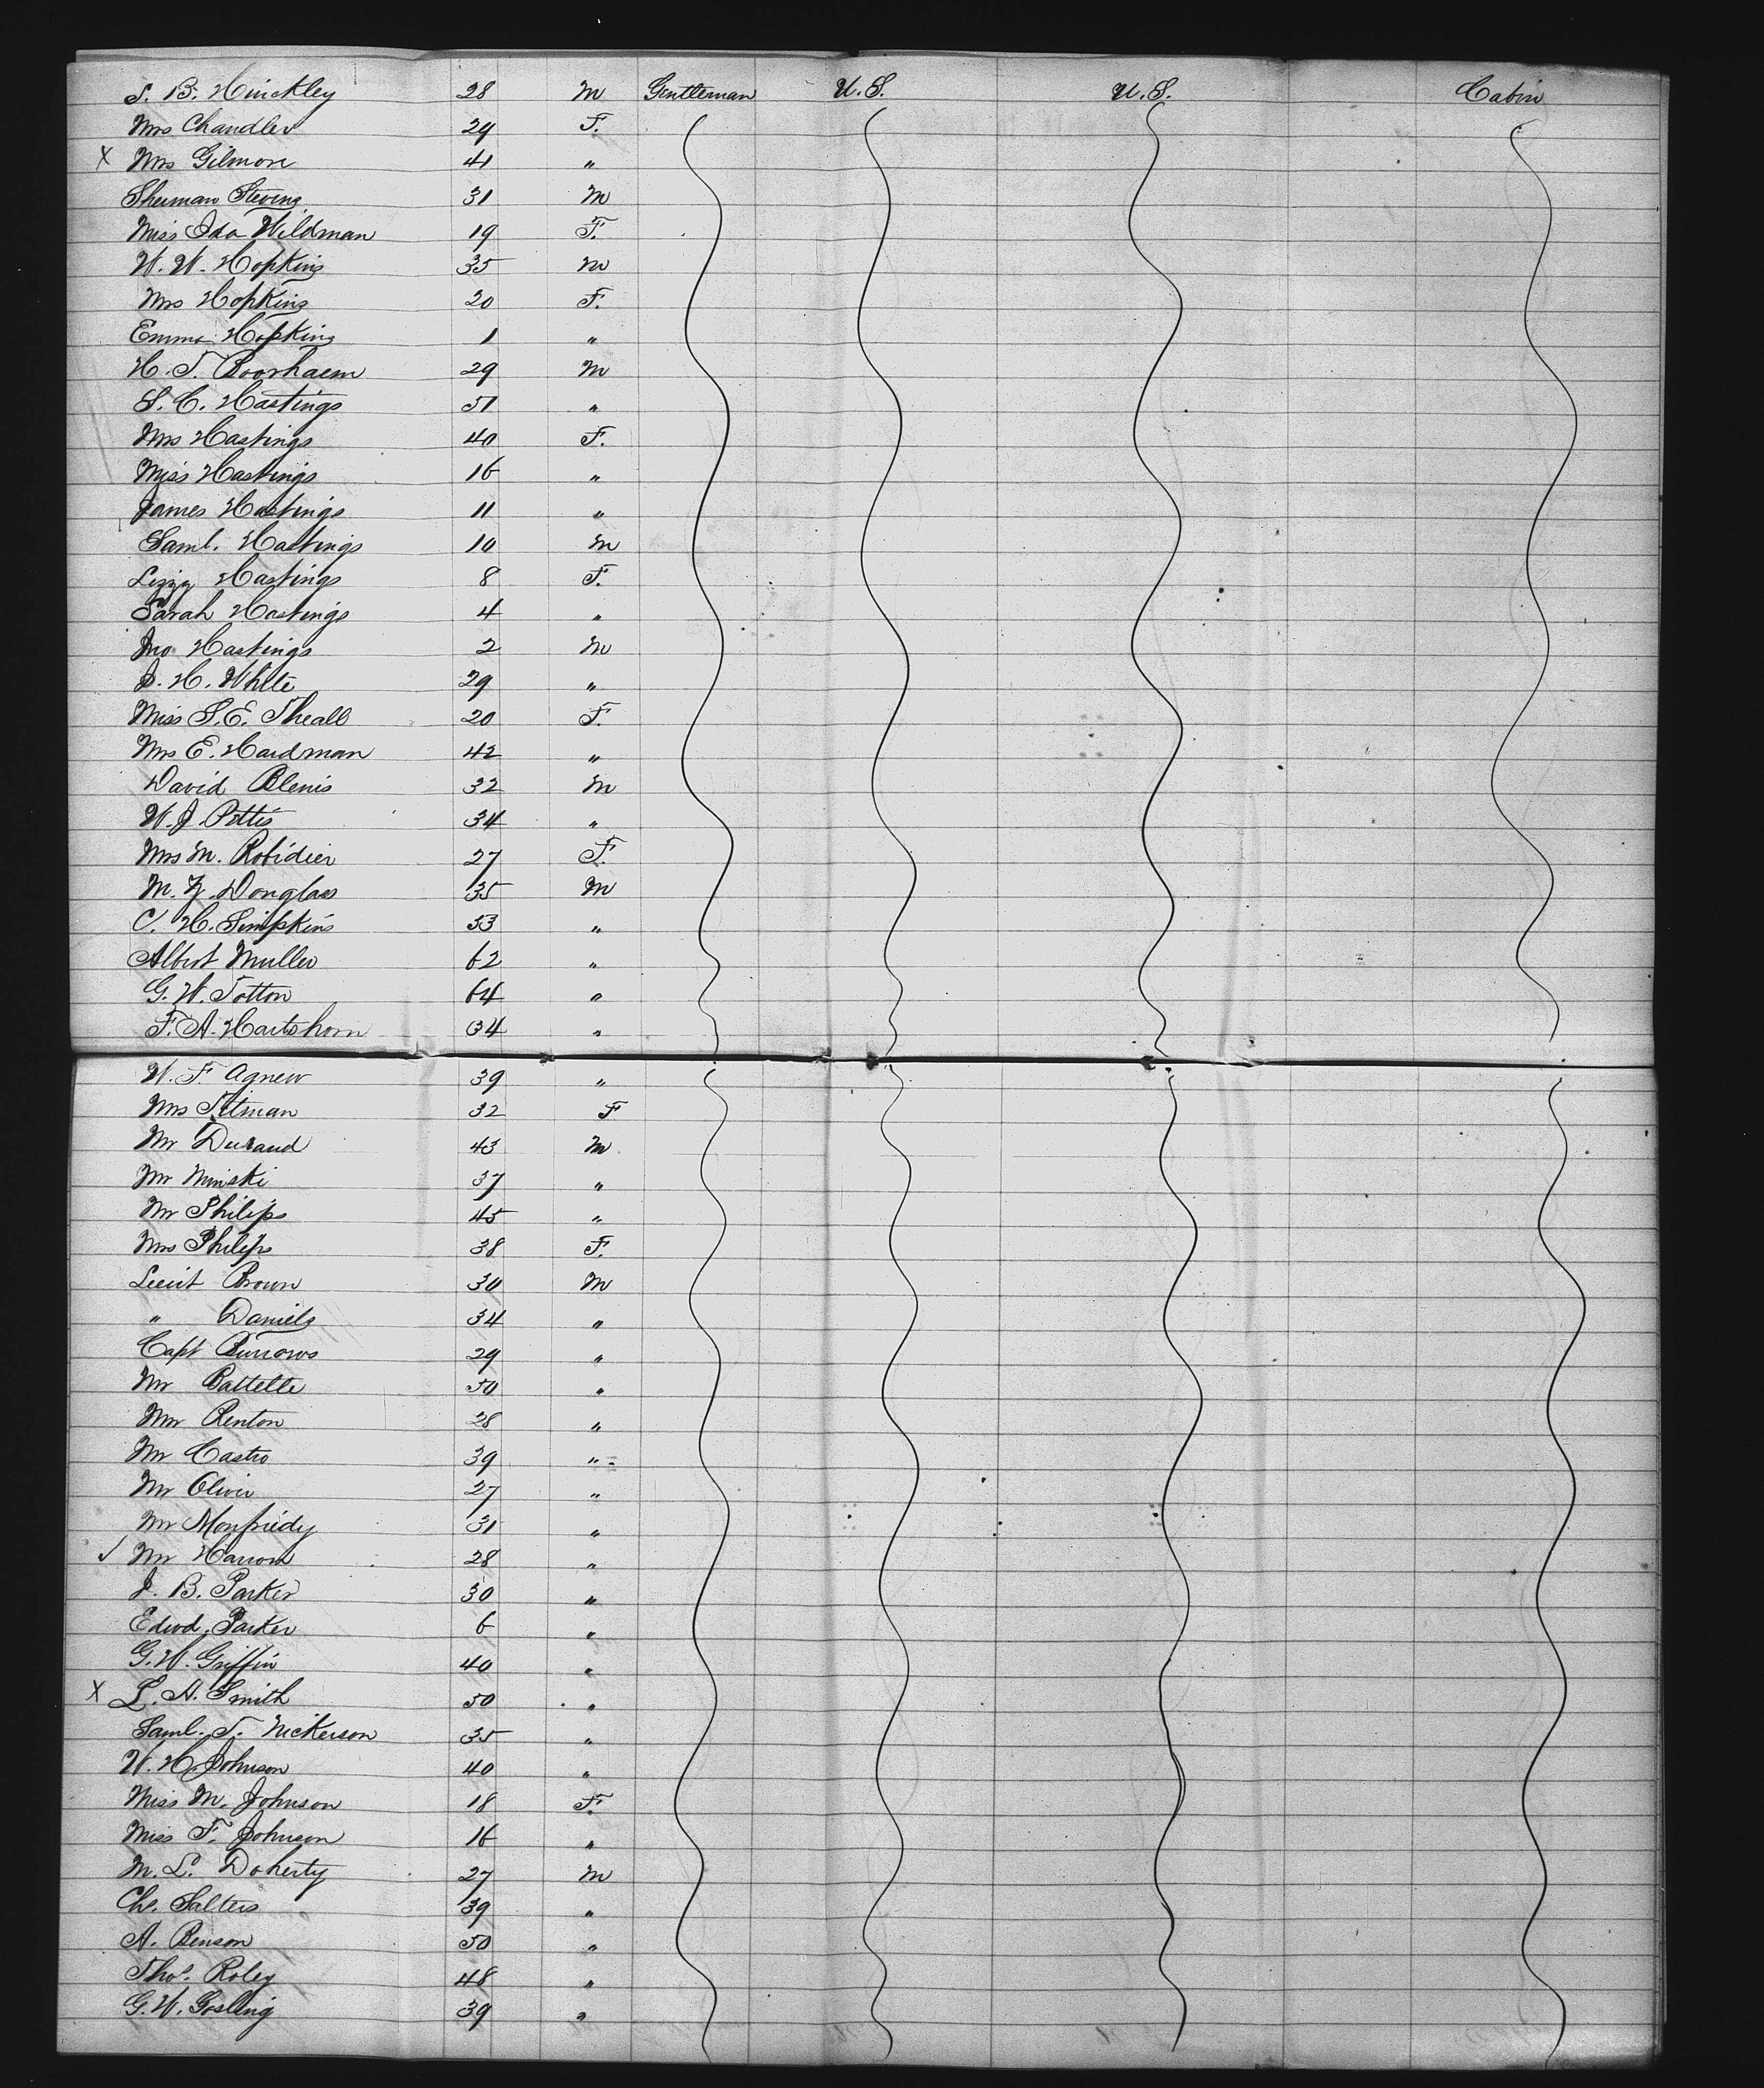 S. B. Hinckley 28 M Gentleman U.S. U.S. Cabin
Mrs Chandler 29 F.
X Mrs Gilmore 41 "
Sherman Stevens 31 M
Miss Ida Wildman 19 F.
W. W. Hopkins 35 M
Mrs Hopkins 20 F.
Emma Hopkins 1 "
H. T. Boorhaem 29 M
S. C. Hastings 51 "
Mrs Hastings 40 F.
Miss Hastings 16 "
James Hastings 11 "
Saml. Hastings 10 M
Lizzy Hastings 8 F.
Sarah Hastings 4 "
Jno Hastings 2 M
J. H. White 29 "
Miss S. E. Theall 20 F.
Mrs E. Hardman 42 "
David Blenis 32 M
W. J. Pettis 34 "
Mrs M. Robidier 27 F.
M. Y. Douglass 35 M
C. H. Simpkins 53 "
Albert Muller 62 "
G. W. Totton 64 "
F. A. Hartshorn 34 "
W. F. Agnew 39 "
Mrs Titman 32 F
Mr Durand 43 M
Mr Minski 37 "
Mr Philips 45 "
Mrs Philips 38 F.
Lieut Brown 30 M
" Daniels 34 "
Capt Burrows 29 "
Mr Battelle 50 "
Mr Renton 28 "
Mr Castro 39 "
Mr Oliver 27 "
Mr Monfriedy 31 "
✓ Mr 28 "
J. B. Parker 30 "
Edwd. Parker 6 "
G. W. Griffin 40 "
X L. A. Smith 50 "
Saml. T. Nickerson 35 "
W. H. Johnson 40 "
Miss M. Johnson 18 F.
Miss F. Johnson 16 "
M. L. Doherty 27 M
Chs. Salters 39 "
A. Benson 50 "
Thos. Roley 48 "
G. W. Gosling 39 "